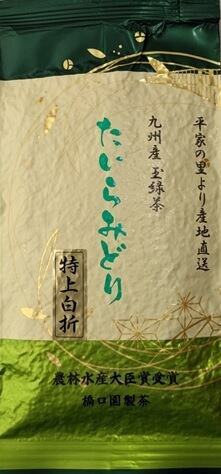 平家の里より産地直送
九州産 玉緑茶
たいらみどり
特上白折
農林水産大臣賞受賞
橋口園製茶